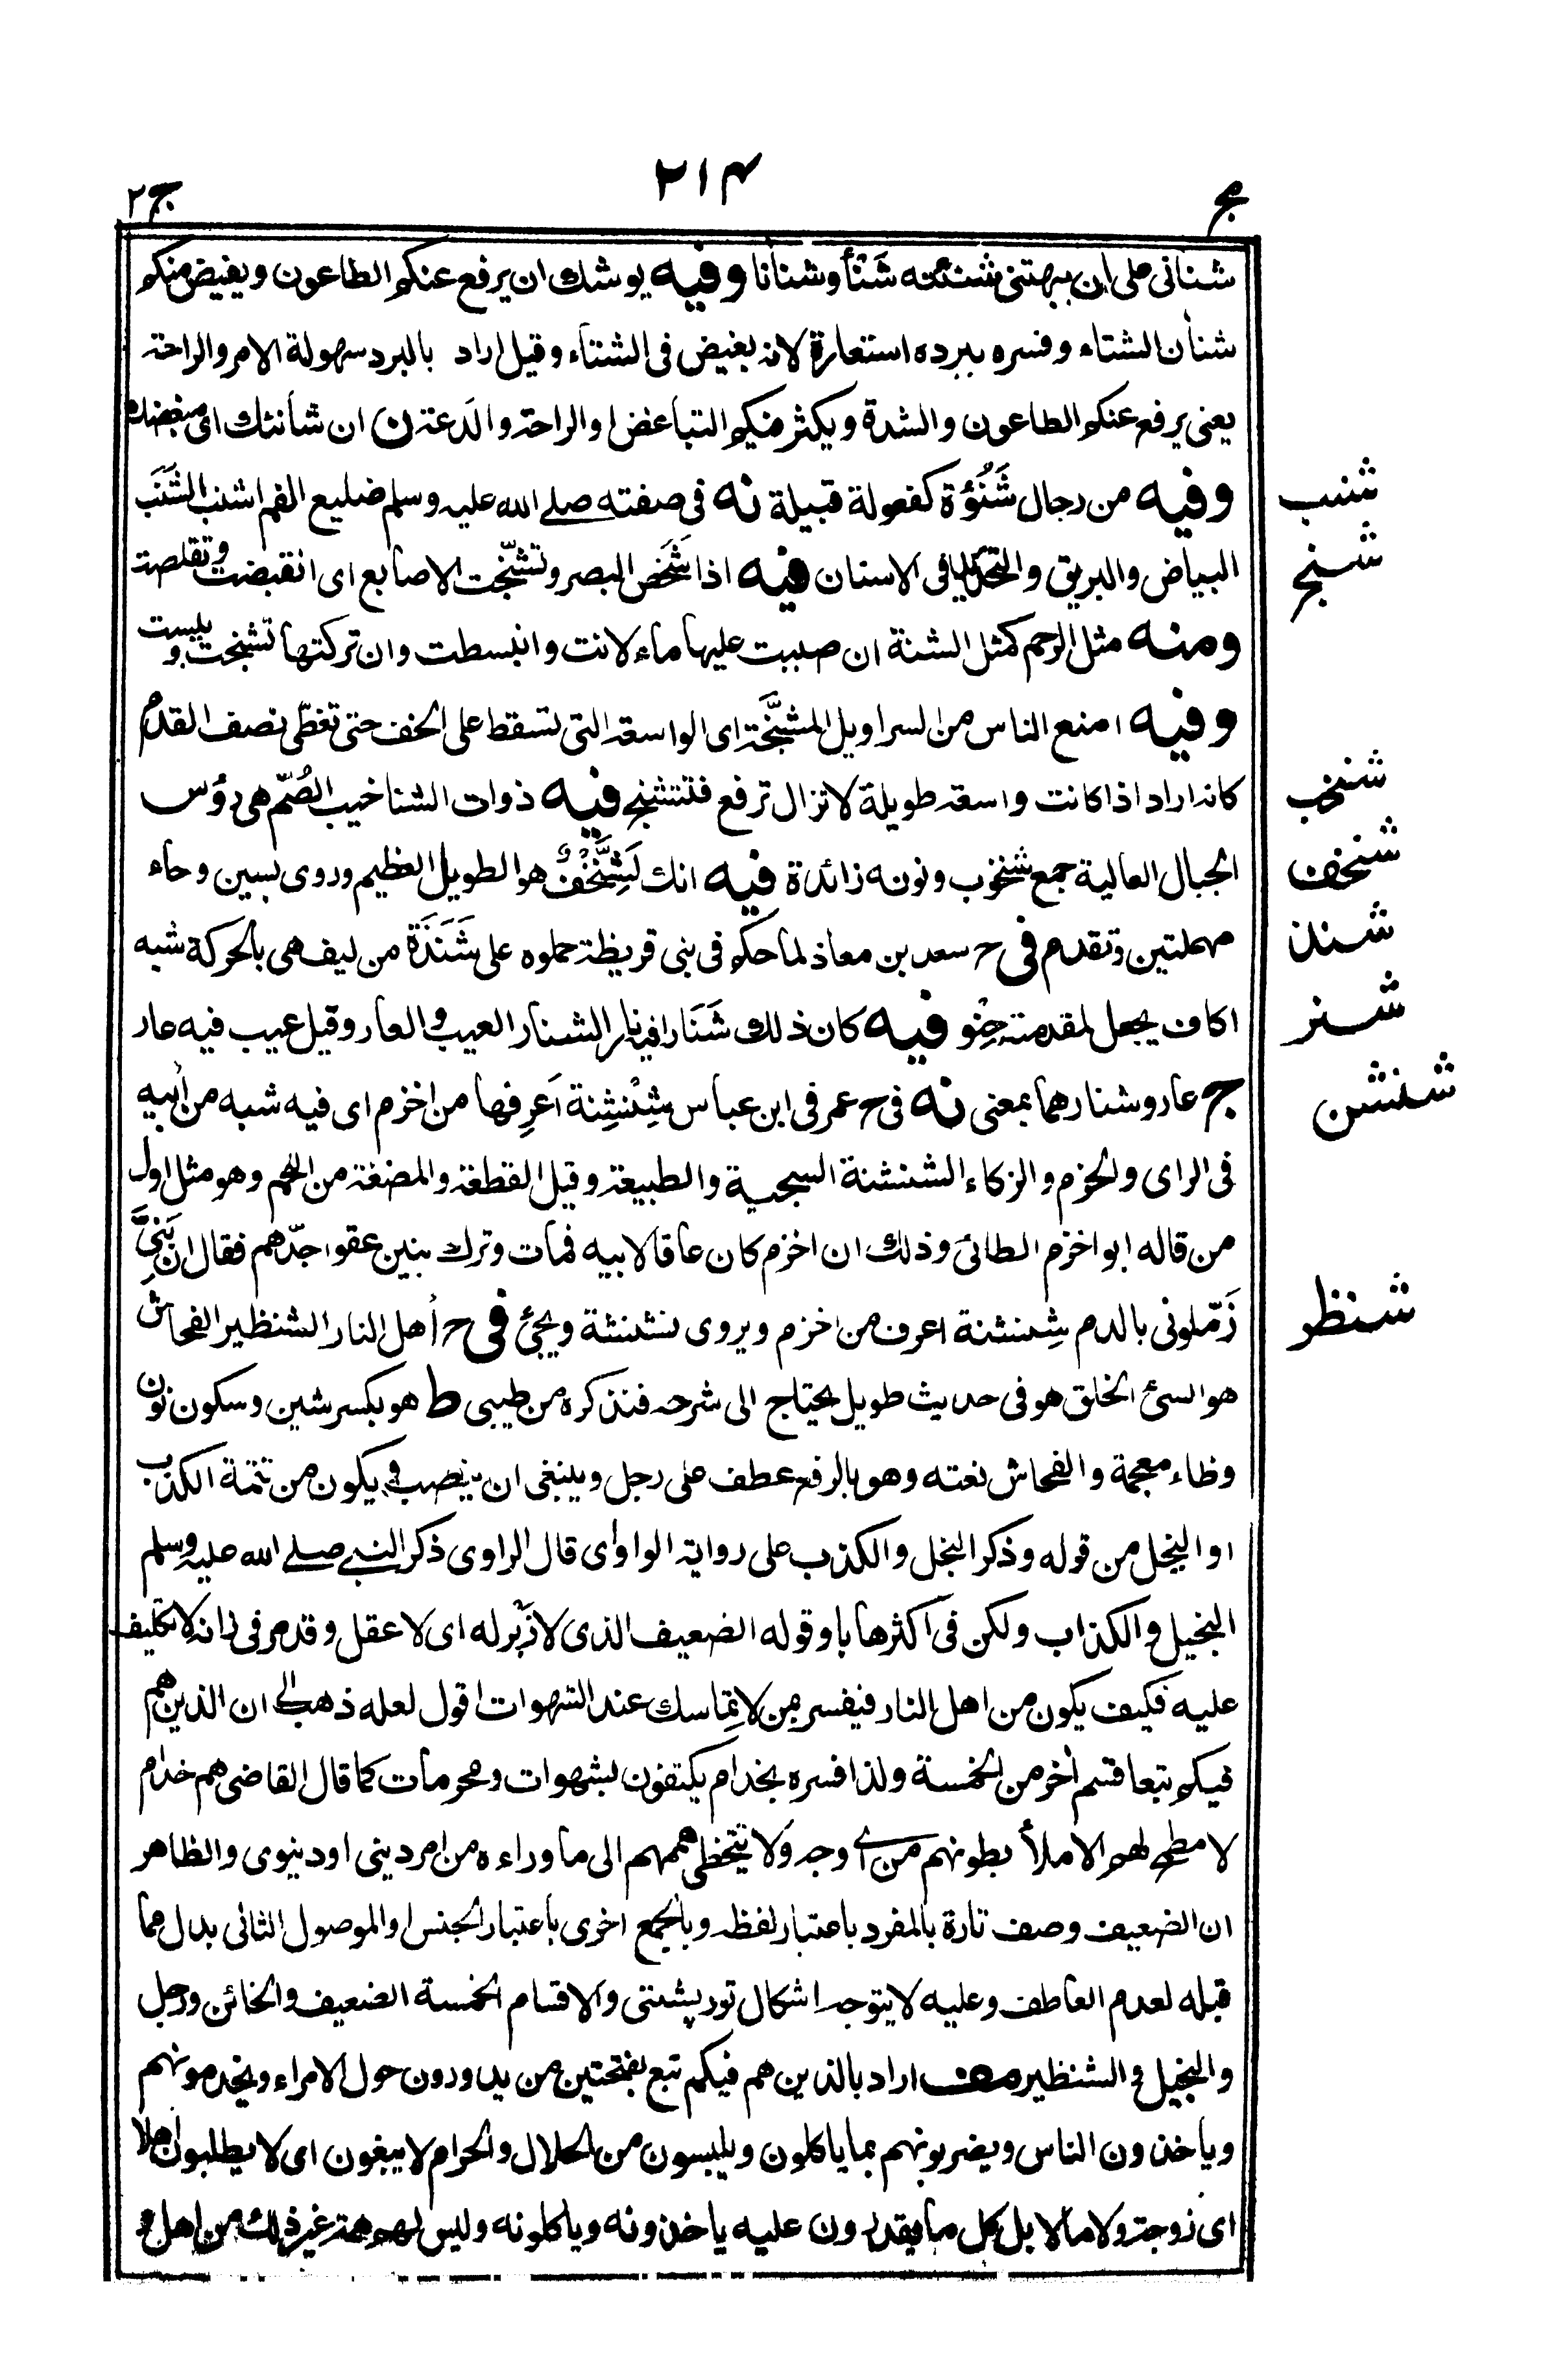 مج
٢١٤
ج٢
شنانى على ان يبهتنى شنئته شَنأ وشنانا وفيه يوشك ان يرفع عنكم الطاعون ويفيض منكم
شنأن الشتاء وفسره ببرده استعارة لانه بغيض فى الشتاء وقيل اراد بالبرد سهولة الامر والراحة
يعنى يرفع عنكم الطاعون والشدة ويكثر منكم التباغض او الراحة والدعة ن ان شأنئك اى مبغضك
وفيه من رجال شَنُؤة كفعولة قبيلة نه فى صفته صلے الله عليه وسلم ضليع الفم اشنب الشَنَب
شنب
البياض والبريق والتحليل فى الاسنان فيه اذا شَخَص البصر وتشنّجت الاصابع اى انقبضت وتقلصت
شنج
ومنه مثل الرحم كمثل الشنة ان صببت عليها ماء لانت وانبسطت وان تركتها تشنجت ويبست
وفيه امنع الناس من السراويل المشنَّجة اى الواسعة التى تسقط على الخف حتى تغطّى نصف القدم
كانه اراد اذا كانت واسعة طويلة لا تزال ترفع فتتشنج فيه ذوات الشناخيب الصُمّ هى رؤس
شنخب
الجبال العالية جمع شنخوب ونونه زائدة فيه انك لَشِنَّخْفٌ هو الطويل العظيم وروى بسين وحاء
شنخف
مهملتين وتقدم فى ح سعد بن معاذ لما حكم فى بنى قريظة حملوه على شَنَذَة من ليف هى بالحركة شبه
شنذ
اكاف يجعل لمقدمته حِنْو فيه كان ذلك شَنَارا فيه نار الشنار العيب والعار وقيل عيب فيه عار
شنر
ج عار وشنار هما بمعنى نه فى ح عمر فى ابن عباس شِنْشِنة اَعرِفها من اخزم اى فيه شبه من أبيه
شنشن
فى الراى والحزم والزكاء الشنشنة السجية والطبيعة وقيل القطعة والمضغة من اللحم وهو مثل اول
من قاله ابو اخزم الطائى وذلك ان اخزم كان عاقا لابيه فمات وترك بنين عقوا جدّهم فقال ان بَنِىَّ
زَمّلونى بالدم شِنشنة اعرف من اخزم ويروى نشنشة ويجئ فى ح أهل النار الشنظير الفحاش
شنظر
هو السئ الخلق هو فى حديث طويل يحتاج الى شرحه فنذكره من طيبى ط هو بكسر شين وسكون نون
وظاء معجمة والفحاش نعته وهو بالرفع عطف على رجل وينبغى ان ينصب فى يكون من تتمة الكذب
او البخل من قوله وذكر البخل والكذب على رواية الواو اى قال الراوى ذكر النبے صلے الله عليه وسلم
البخيل والكذاب ولكن فى اكثرها باو قوله الضعيف الذى لا زَبْر له اى لا عقل وقد مر فى ز انه لا تكليف
عليه فكيف يكون من اهل النار فيفسر بمن لا تماسك عند الشهوات اقول لعله ذهب الى ان الذين هم
فيكم تبعا قسم أخر من الخمسة ولذا فسره بخدام يكتفون بشهوات ومحرمات كما قال القاضى هم خدام
لا مطمح لهم الا ملأ بطونهم من اى وجه ولا تتخطى هممهم الى ما وراءه من امر دينى او دنيوى والظاهر
ان الضعيف وصف تارة بالمفرد باعتبار لفظه وبالجمع اخرى باعتبار الجنس او الموصول الثانى بدل مما
قبله لعدم العاطف وعليه لا يتوجه اشكال تورپشتى والاقسام الخمسة الضعيف والخائن ورجل
والبخيل و الشنظير مف اراد بالذين هم فيكم تبع بفتحتين من يدورون حول الامراء ويخدمونهم
وياخذون الناس ويضربونهم بما ياكلون ويلبسون من الحلال والحرام لا يبغون اى لا يطلبون أهلا
اى زوجة ولا مالا بل كل ما يقدرون عليه ياخذونه وياكلونه وليس لهم همة غير ذلك من اهل و